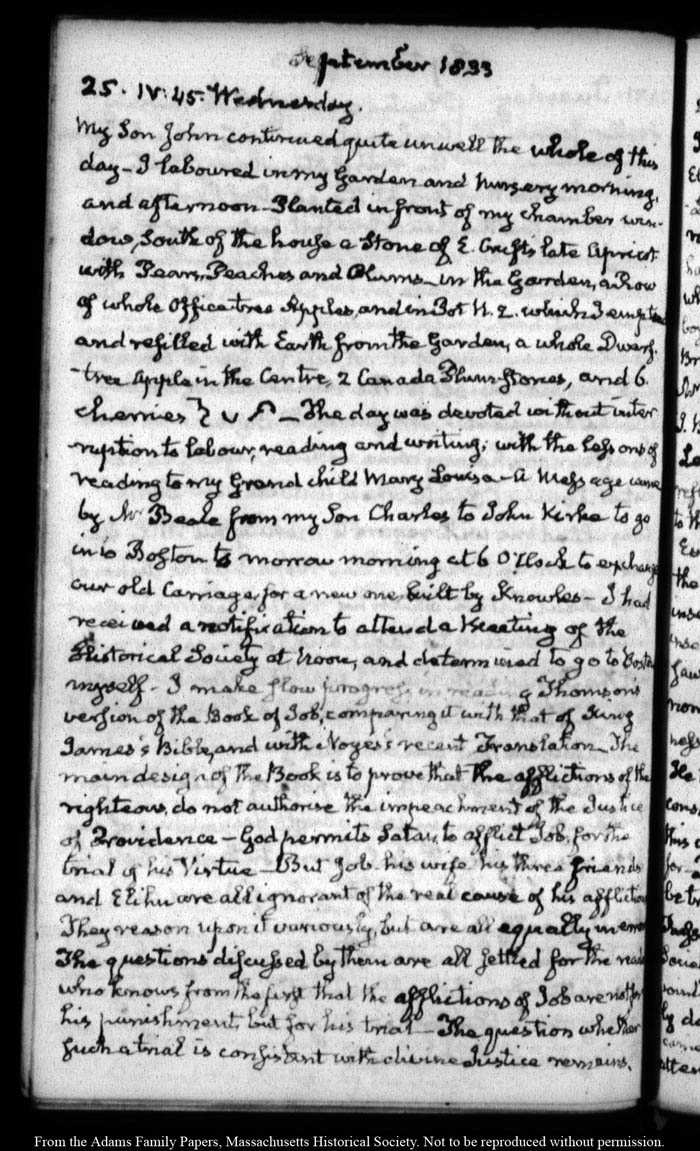 September 1833
25. IV:45. Wednesday.
My Son John continued quite unwell the whole of this
day— I laboured in my Garden and Nursery morning,
and afternoon— Planted in front of my chamber win-
dow, South of the house a Stone of E. Crufts late Apricot
with Pears, Peaches and Plums— in the Garden, a Row
of whole Office-tree Apples, and in Pot N. 2. which I emptied
and refilled with Earth from the Garden, a whole Dwarf-
tree Apple in the Centre, 2 Canada Plum-stones, and 6.
cherries — The day was devoted without inter
ruption to labour, reading and writing; with the lessons of
reading to my Grand child Mary Louisa— A Message came
by Mr Beale from my Son Charles to John Kirke to go
into Boston to morrow morning at 6 O'Clock to exchange
our old Carriage, for a new one, built by Knowles— I had
received a notification to attend a Meeting of the
Historical Society at Noon, and determined to go to Boston
myself— I make slow progress in reading Thomson's
version of the Book of Job, comparing it with that of King
James's Bible, and with Noyes's recent Translation— The
main design of the Book is to prove that the afflictions of the
righteous, do not authorise the impeachment of the Justice
of Providence— God permits Satan, to afflict Job, for the
trial of his Virtue— But Job his wife his three friends
and Elihu are all ignorant of the real cause of his affliction
They reason upon it variously, but are all equally in error
The questions discussed by them are all settled for the reader
who knows from the first that the afflictions of Job are not for
his punishment, but for his trial— The question whether
such a trial is consistent with divine Justice remains.
From the Adams Family Papers, Massachusetts Historical Society. Not to be reproduced without permission.